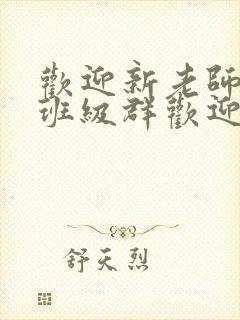 歡迎新老師
班級群歡迎
舒天烈